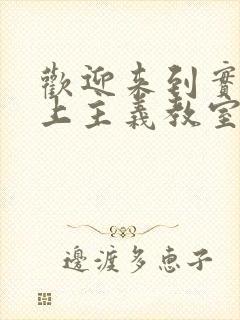 歡迎來到實
上主義教室
邊渡多惠子